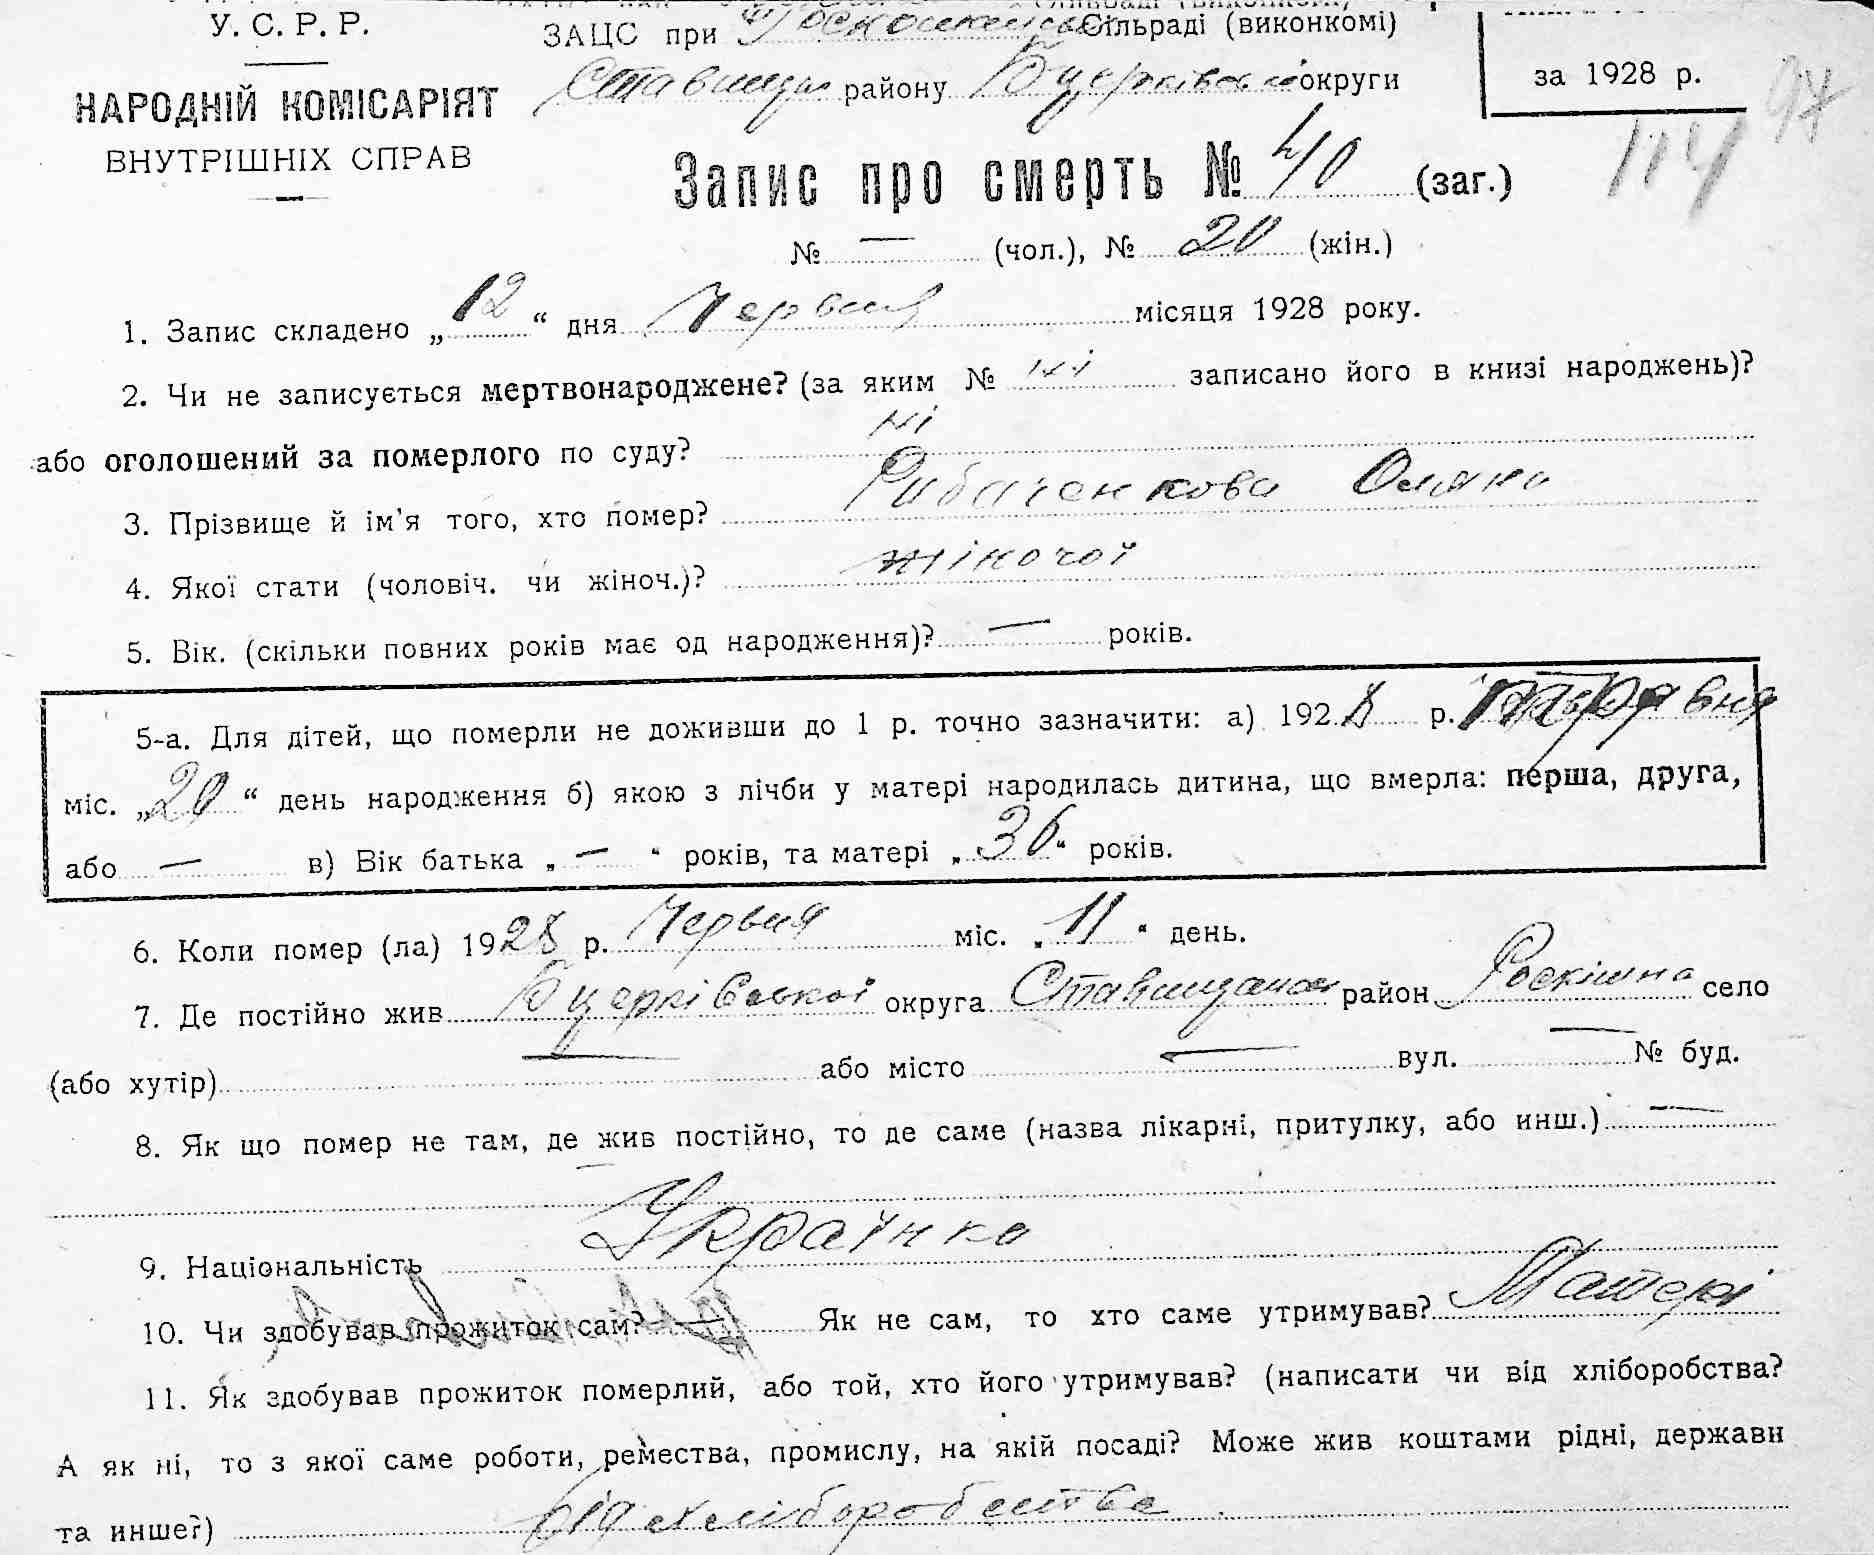 У. С. Р. Р.
НАРОДНІЙ КОМІСАРІЯТ
ВНУТРІШНІХ СПРАВ
ЗАЦС при Сільраді (виконкомі)
району Бцерківської округи
за 1928 р.
97
114
Запис про смерть № 40 (заг.)
№ — (чол.), № 20 (жін.)
1. Запис складено „12“ дня Червня місяця 1928 року.
2. Чи не записується мертвонароджене? (за яким № ні записано його в книзі народжень)?
або оголошений за померлого по суду? ні
3. Прізвище й ім'я того, хто помер? Рибаченкова Оляна
4. Якої стати (чоловіч. чи жіноч.)? жіночої
5. Вік. (скільки повних років має од народження)? — років.
5-а. Для дітей, що померли не доживши до 1 р. точно зазначити: а) 1928 р.
міс. „20“ день народження б) якою з лічби у матері народилась дитина, що вмерла: перша, друга,
або — в) Вік батька „—“ років, та матері „36“ років.
6. Коли помер (ла) 1928 р. Червня міс. „11“ день.
7. Де постійно жив Бцерківської округа район Роскішна село
(або хутір) — або місто — вул. — № буд.
8. Як що помер не там, де жив постійно, то де саме (назва лікарні, притулку, або инш.) —
9. Національність Українка
10. Чи здобував прожиток сам? — Як не сам, то хто саме утримував? Матері
11. Як здобував прожиток померлий, або той, хто його утримував? (написати чи від хліборобства?
А як ні, то з якої саме роботи, ремества, промислу, на якій посаді? Може жив коштами рідні, держави
та инше?) від хліборобства